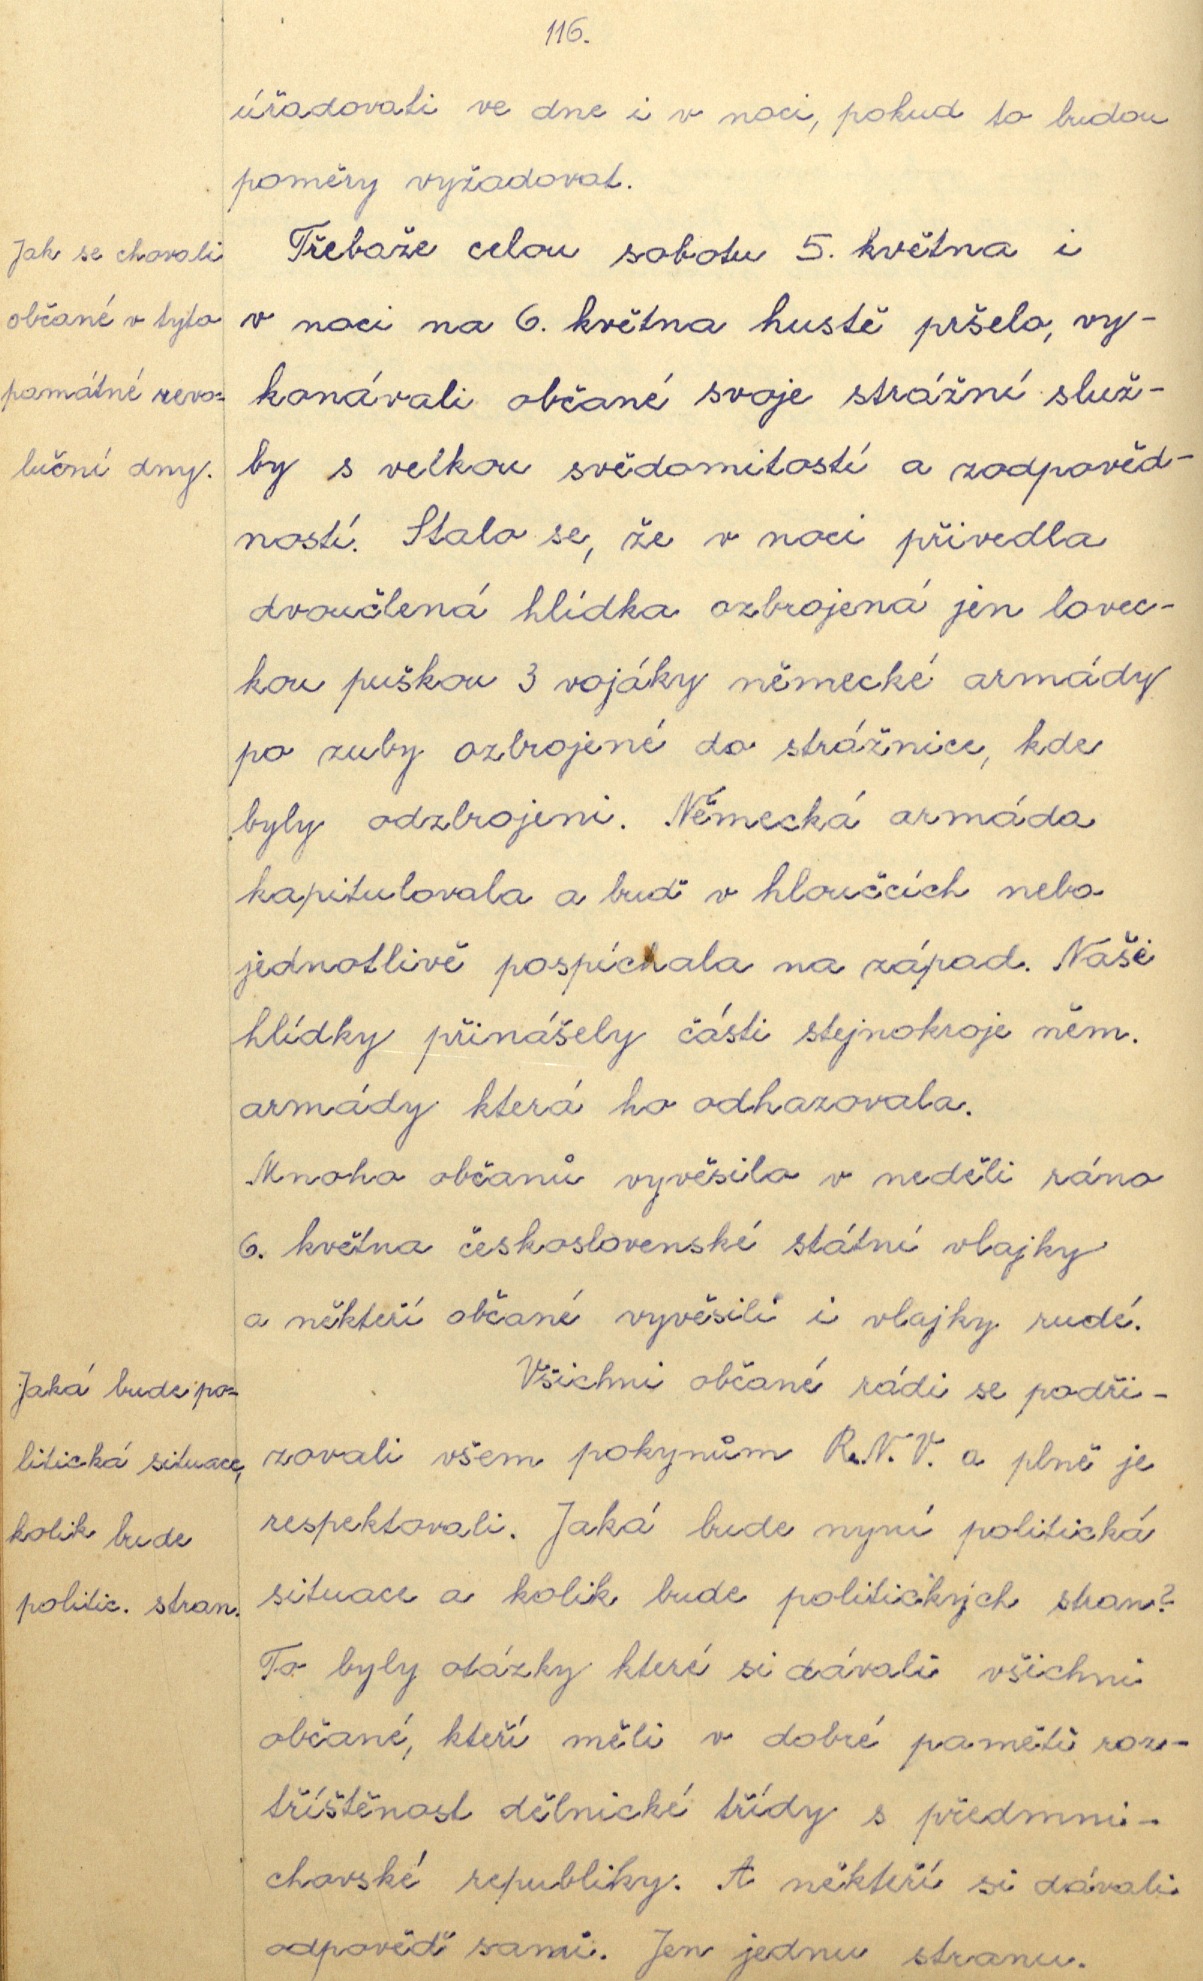 116.
úřadovati ve dne i v noci, pokud to budou
poměry vyžadovat.
Jak se chovali
občané v tyto
památné revo=
luční dny.
Třebaže celou sobotu 5. května i
v noci na 6. května hustě pršelo, vy-
konávali občané svoje strážní služ-
by s velkou svědomitostí a zodpověd-
ností. Stalo se, že v noci přivedla
dvoučlená hlídka ozbrojená jen lovec-
kou puškou 3 vojáky německé armády
po zuby ozbrojené do strážnice, kde
byly odzbrojeni. Německá armáda
kapitulovala a buď v hloučcích nebo
jednotlivě pospíchala na západ. Naše
hlídky přinášely části stejnokroje něm.
armády která ho odhazovala.
Mnoho občanů vyvěsilo v neděli ráno
6. května československé státní vlajky
a někteří občané vyvěsili i vlajky rudé.
Jaká bude po=
litická situace,
kolik bude
politic. stran.
Všichni občané rádi se podři-
zovali všem pokynům R.N.V. a plně je
respektovali. Jaká bude nyní politická
situace a kolik bude politických stran?
To byly otázky které si dávali všichni
občané, kteří měli v dobré paměti roz-
tříštěnost dělnické třídy s předmni-
chovské republiky. A někteří si dávali
odpověď sami. Jen jednu stranu.